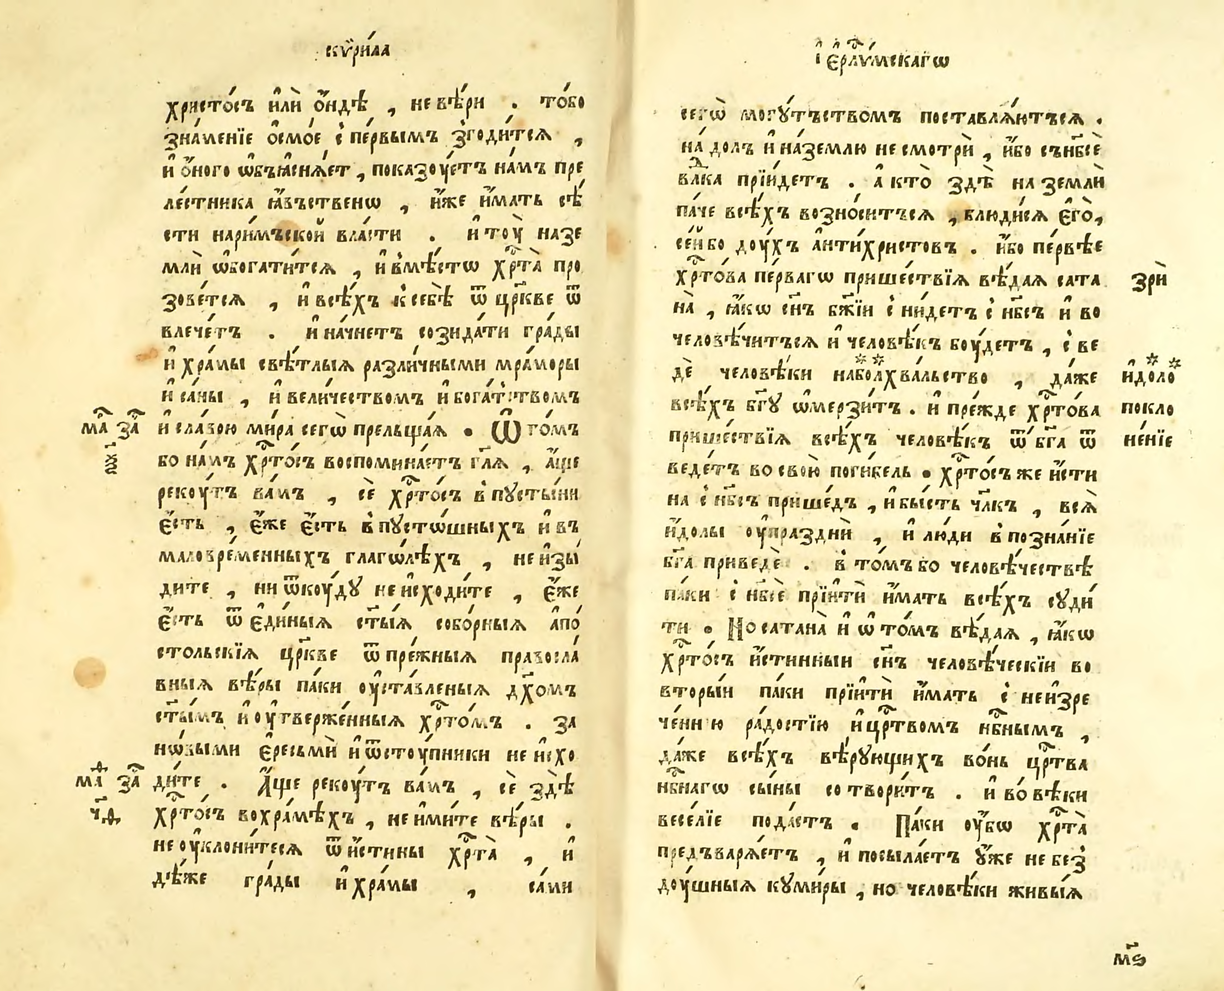 кѷри́ла
христо́съ и҆лѝ ѻ҆́ндѣ , не вѣ́ри . то́бо
зна́меніе о҆смо́е с̾ пе́рвымъ згоди́тсѧ ,
и҆ ѻ҆́ного ѡ҆бъꙗсня́ет , показоу́етъ на́мъ пре
ле́стника ꙗ҆́въственѡ , и҆́же и҆́мать сѣ́
сти на ри́мъской вла́сти . и тоу̀ на зе
млѝ ѡ҆богати́тсѧ , и҆ в̾мѣ́стѡ хрⷭ҇та̀ про
зове́тсѧ , и҆ всѣ́хъ к̾ себѣ̀ ѿ цр҃кве ѿ
влече́тъ . и҆ на́чнетъ созида́ти гра́ды
и҆ хра́мы свѣ́тлыѧ разли́чными мра́моры
и҆ са́ны , и҆ вели́чествомъ и҆ бога́тствомъ
и҆ сла́вою ми́ра сегѡ̀ прельща́ѧ . Ѿ то́мъ
бо на́мъ хрⷭ҇то́съ воспомина́етъ гл҃ѧ , а҆́ще
реку́тъ ва́мъ , сѐ хрⷭ҇то́съ в̾ пусты́ни
є҆́сть , є҆́же є҆́сть в̾ пусто́шныхъ и҆ въ
маловре́менныхъ глаго́лѣхъ , не и҆зы́
дите , ни ѿкоу́ду не и҆схо́дите , є҆́же
є҆́сть ѿ є҆ди́ныѧ ст҃ы́ѧ собо́рныѧ а҆по́
стольскїѧ цр҃кве ѿ пре́жныѧ правосла́
вныѧ вѣ́ры па́ки оу҆ста́вленыѧ дх҃омъ
ст҃ы́мъ и҆ оу҆тверже́нныѧ хрⷭ҇то́мъ . за
но́выми є҆ресьмѝ и҆ ѿсту́пники не и҆схо
ди́те . А҆́ще рекоу́тъ ва́мъ , сѐ здѣ̀
хрⷭ҇то́съ во хра́мѣхъ , не и҆ми́те вѣ́ры .
не оу҆клони́тесѧ ѿ и҆́стины хрⷭ҇та̀ , и҆
дѣ́же гра́ды и҆ хра́мы , са́ми
маⷴ заⷱ
маⷴ заⷱ
чⷧ҇ѳ
і҆є҆рⷭ҇лѵ́мскагѡ
сегѡ̀ могу́тъствомъ поставлѧ́ютъсѧ .
на́ долъ и҆ на́ землю не смотрѝ , и҆́бо съ нб҃сѐ
влⷣка прїи́детъ . а҆ кто̀ здѣ̀ на землѝ
па́че всѣ́хъ возно́ситъсѧ , блюди́сѧ є҆го̀,
се́й бо доу́хъ а҆нти́христовъ . и҆́бо пе́рвѣе
хрⷭ҇то́ва пе́рвагѡ прише́ствїѧ вѣ́даѧ сата
на̀ , ꙗ҆́кѡ сн҃ъ бж҃їи с̾ни́детъ с̾ нб҃съ и҆ во
человѣ́читъсѧ и҆ человѣ́къ боу́детъ , с̾ ве
дѐ человѣ́ки на бол̾хва́льство , да́же
всѣ́хъ бг҃у ѡ҆мерзи́тъ . и҆ пре́жде хрⷭ҇то́ва
прише́ствїѧ всѣ́хъ человѣ́къ ѿ бг҃а ѿ
веде́тъ во свою̀ поги́бель . хрⷭ҇то́съ же и҆́сти
на с̾ нб҃съ прише́дъ , и҆ бы́сть чл҃къ , всѧ̀
и҆́долы оу҆праздни̇̀ , и҆ лю́ди в̾ позна́нїе
бг҃а приведѐ . в̾ то́мъ бо человѣ́чествѣ
па́ки с̾ нб҃сѐ прїи́тѝ и҆́мать всѣ́хъ суди́
ти . Но сатана̀ и҆ ѡ҆ то́мъ вѣ́даѧ , ꙗ҆́кѡ
хрⷭ҇то́съ и҆́стинныи сн҃ъ человѣ́ческїи во
вторы́и па́ки прїитѝ и҆́мать с̾ неи҆зре
че́нною ра́достїю и҆ црⷭ҇твомъ нбⷭ҇нымъ ,
да́же всѣ́хъ вѣ́рующихъ во́нь црⷭ҇тва
нбⷭ҇нагѡ сы́ны сотвори́тъ . и҆ во́ вѣки
весе́лїе пода́стъ . Па́ки оу҆́бѡ хрⷭ҇та̀
предъварѧ́етъ , и҆ посыла́етъ у҆́же не без̾
доу́шныѧ куми́ры , но человѣ́ки живы́ѧ
зрѝ
и҆доло
покло
не́нїе
м҃ѕ